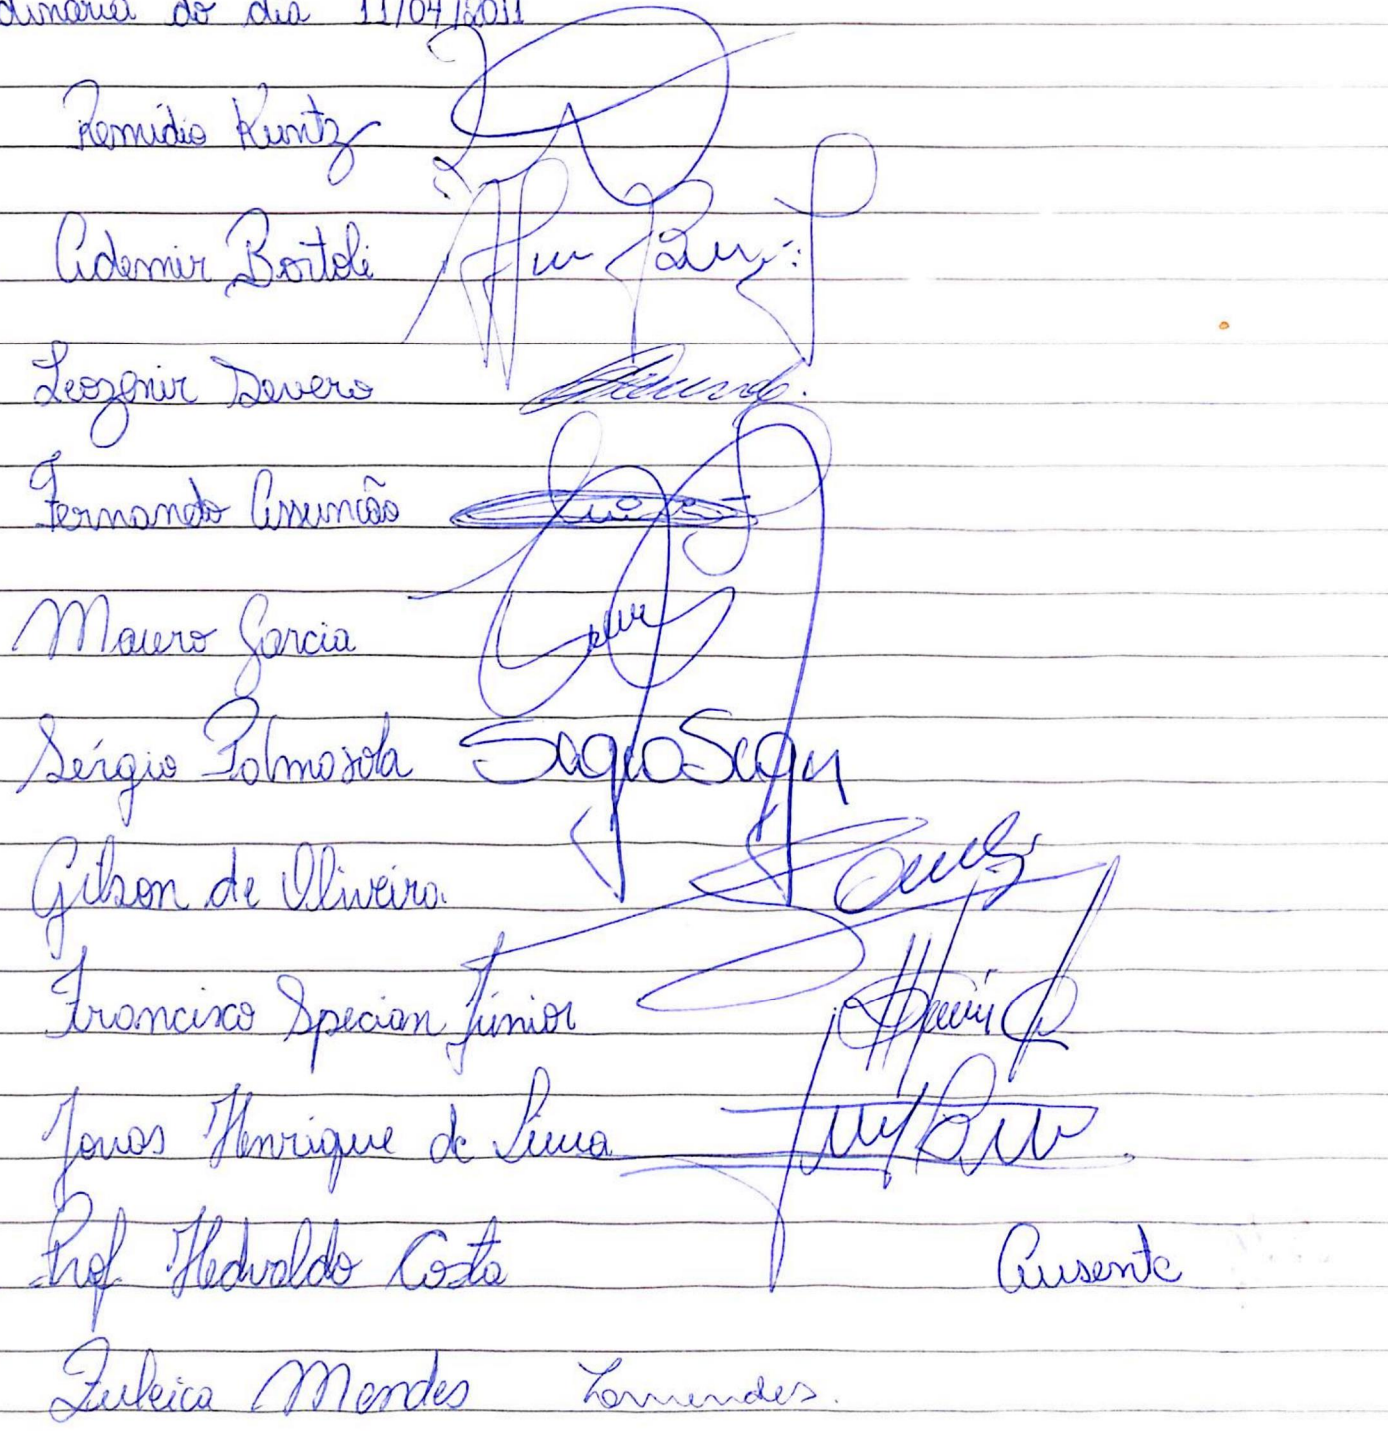 dinária do dia 11/04/2011
Remídio Kuntz
Ademir Bortoli
Leozenir Severo
Fernando Assunção
Mauro Garcia
Sérgio Palmasola
Gilson de Oliveira.
Francisco Specian Júnior
Jonas Henrique de Lima
Prof Hedvaldo Costa Ausente
Zuleica Mendes Zomendes.